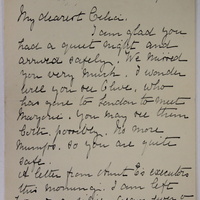 My dearest Celia.
I am glad you
had a quiet night and
arrived safely. We missed
you very much. I wonder
will you see Clive, who
has gone to London to meet
Marjorie. You may see them
both, possibly. No more
Mumps. so you are quite
safe.
A letter from Aunt E's executors
this morning. I am left